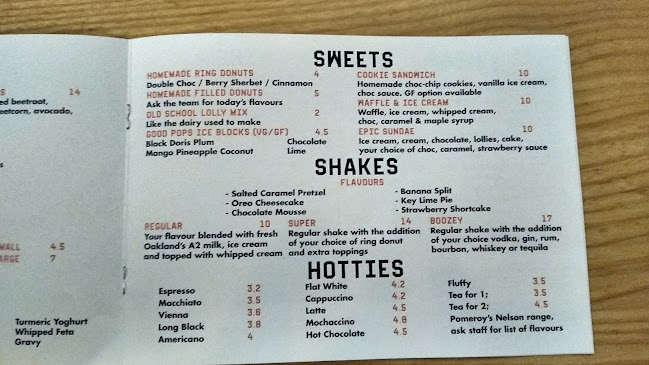 S 14
ed beetroot,
eetcorn, avocado,
s
MALL 4.5
ARGE 7
Turmeric Yoghurt
Whipped Feta
Gravy
SWEETS
HOMEMADE RING DONUTS 4
Double Choc / Berry Sherbet / Cinnamon
HOMEMADE FILLED DONUTS 5
Ask the team for today's flavours
OLD SCHOOL LOLLY MIX 2
Like the dairy used to make
GOOD POPS ICE BLOCKS (VG/GF) 4.5
Black Doris Plum Chocolate
Mango Pineapple Coconut Lime
COOKIE SANDWICH 10
Homemade choc-chip cookies, vanilla ice cream,
choc sauce. GF option available
WAFFLE & ICE CREAM 10
Waffle, ice cream, whipped cream,
choc, caramel & maple syrup
EPIC SUNDAE 10
Ice cream, cream, chocolate, lollies, cake,
your choice of choc, caramel, strawberry sauce
SHAKES
FLAVOURS
- Salted Caramel Pretzel
- Oreo Cheesecake
- Chocolate Mousse
- Banana Split
- Key Lime Pie
- Strawberry Shortcake
REGULAR 10
Your flavour blended with fresh
Oakland's A2 milk, ice cream
and topped with whipped cream
SUPER 14
Regular shake with the addition
of your choice of ring donut
and extra toppings
BOOZEY 17
Regular shake with the addition
of your choice vodka, gin, rum,
bourbon, whiskey or tequila
HOTTIES
Espresso 3.2
Macchiato 3.5
Vienna 3.6
Long Black 3.8
Americano 4
Flat White 4.2
Cappuccino 4.2
Latte 4.5
Mochaccino 4.8
Hot Chocolate 4.5
Fluffy 3.5
Tea for 1; 3.5
Tea for 2; 4.5
Pomeroy's Nelson range,
ask staff for list of flavours